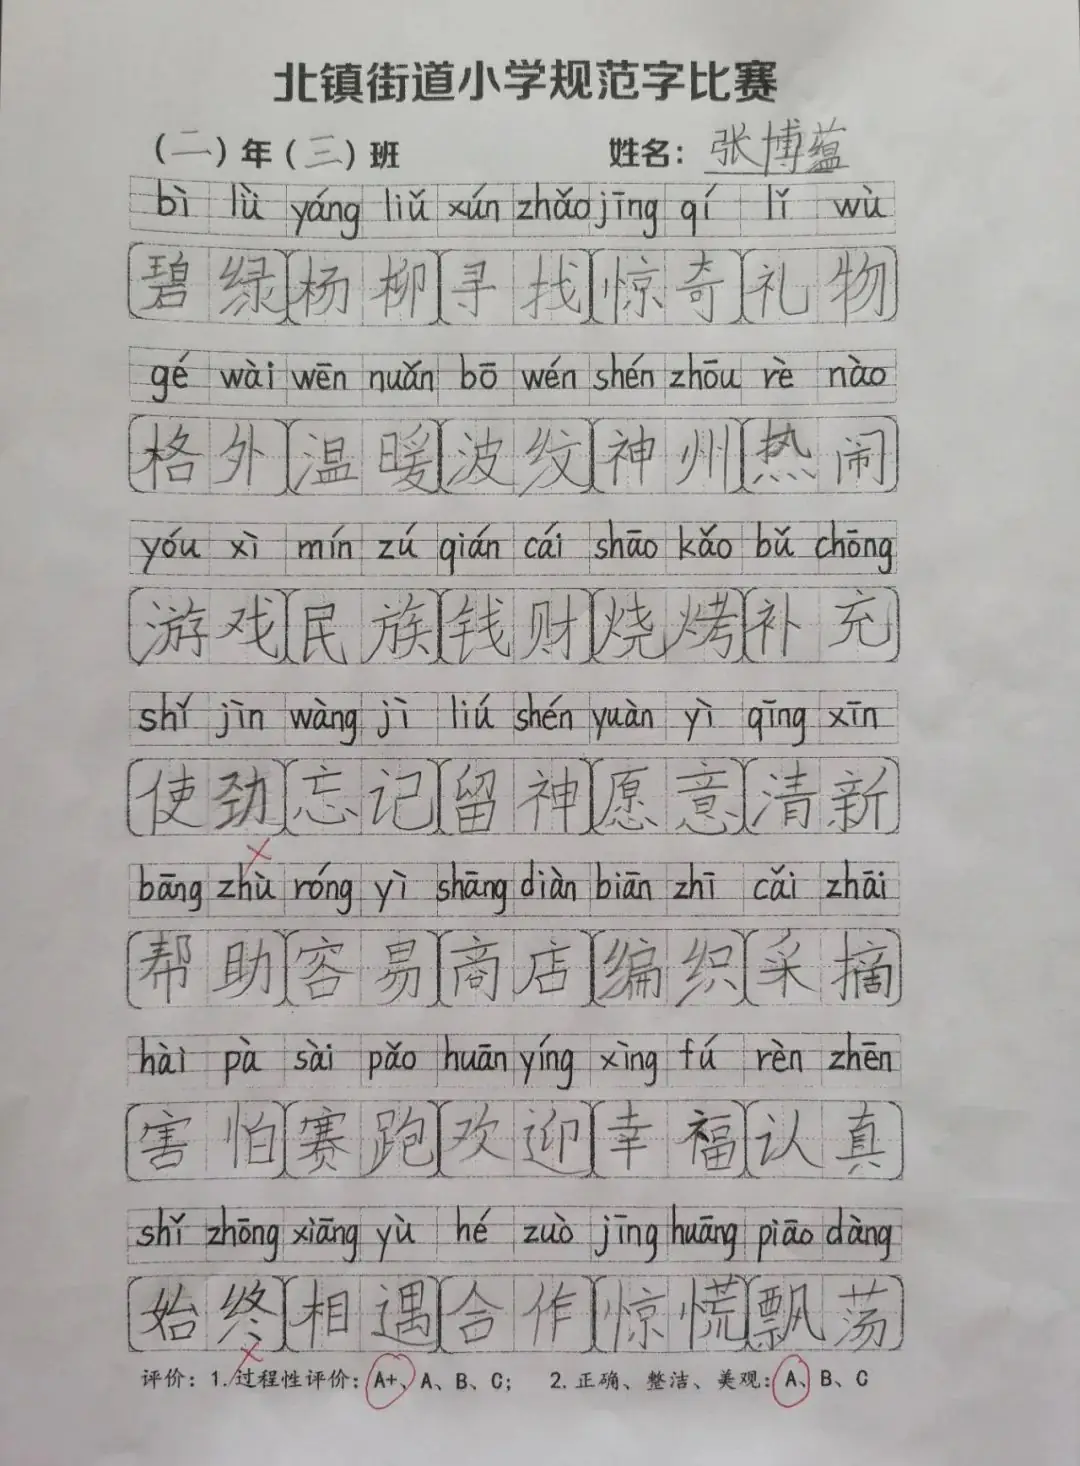 北镇街道小学规范字比赛
（二）年（三）班 姓名：张博蕴
bì lǜ yáng liǔ xún zhǎo jīng qí lǐ wù
碧绿 杨柳 寻找 惊奇 礼物
gé wài wēn nuǎn bō wén shén zhōu rè nào
格外 温暖 波纹 神州 热闹
yóu xì mín zú qián cái shāo kǎo bǔ chōng
游戏 民族 钱财 烧烤 补充
shǐ jìn wàng jì liú shén yuàn yì qīng xīn
使劲 忘记 留神 愿意 清新
bāng zhù róng yì shāng diàn biān zhī cǎi zhāi
帮助 容易 商店 编织 采摘
hài pà sài pǎo huān yíng xìng fú rèn zhēn
害怕 赛跑 欢迎 幸福 认真
shǐ zhōng xiāng yù hé zuò jīng huāng piāo dàng
始终 相遇 合作 惊慌 飘荡
评价：1.过程性评价：A+、A、B、C； 2.正确、整洁、美观：A、B、C